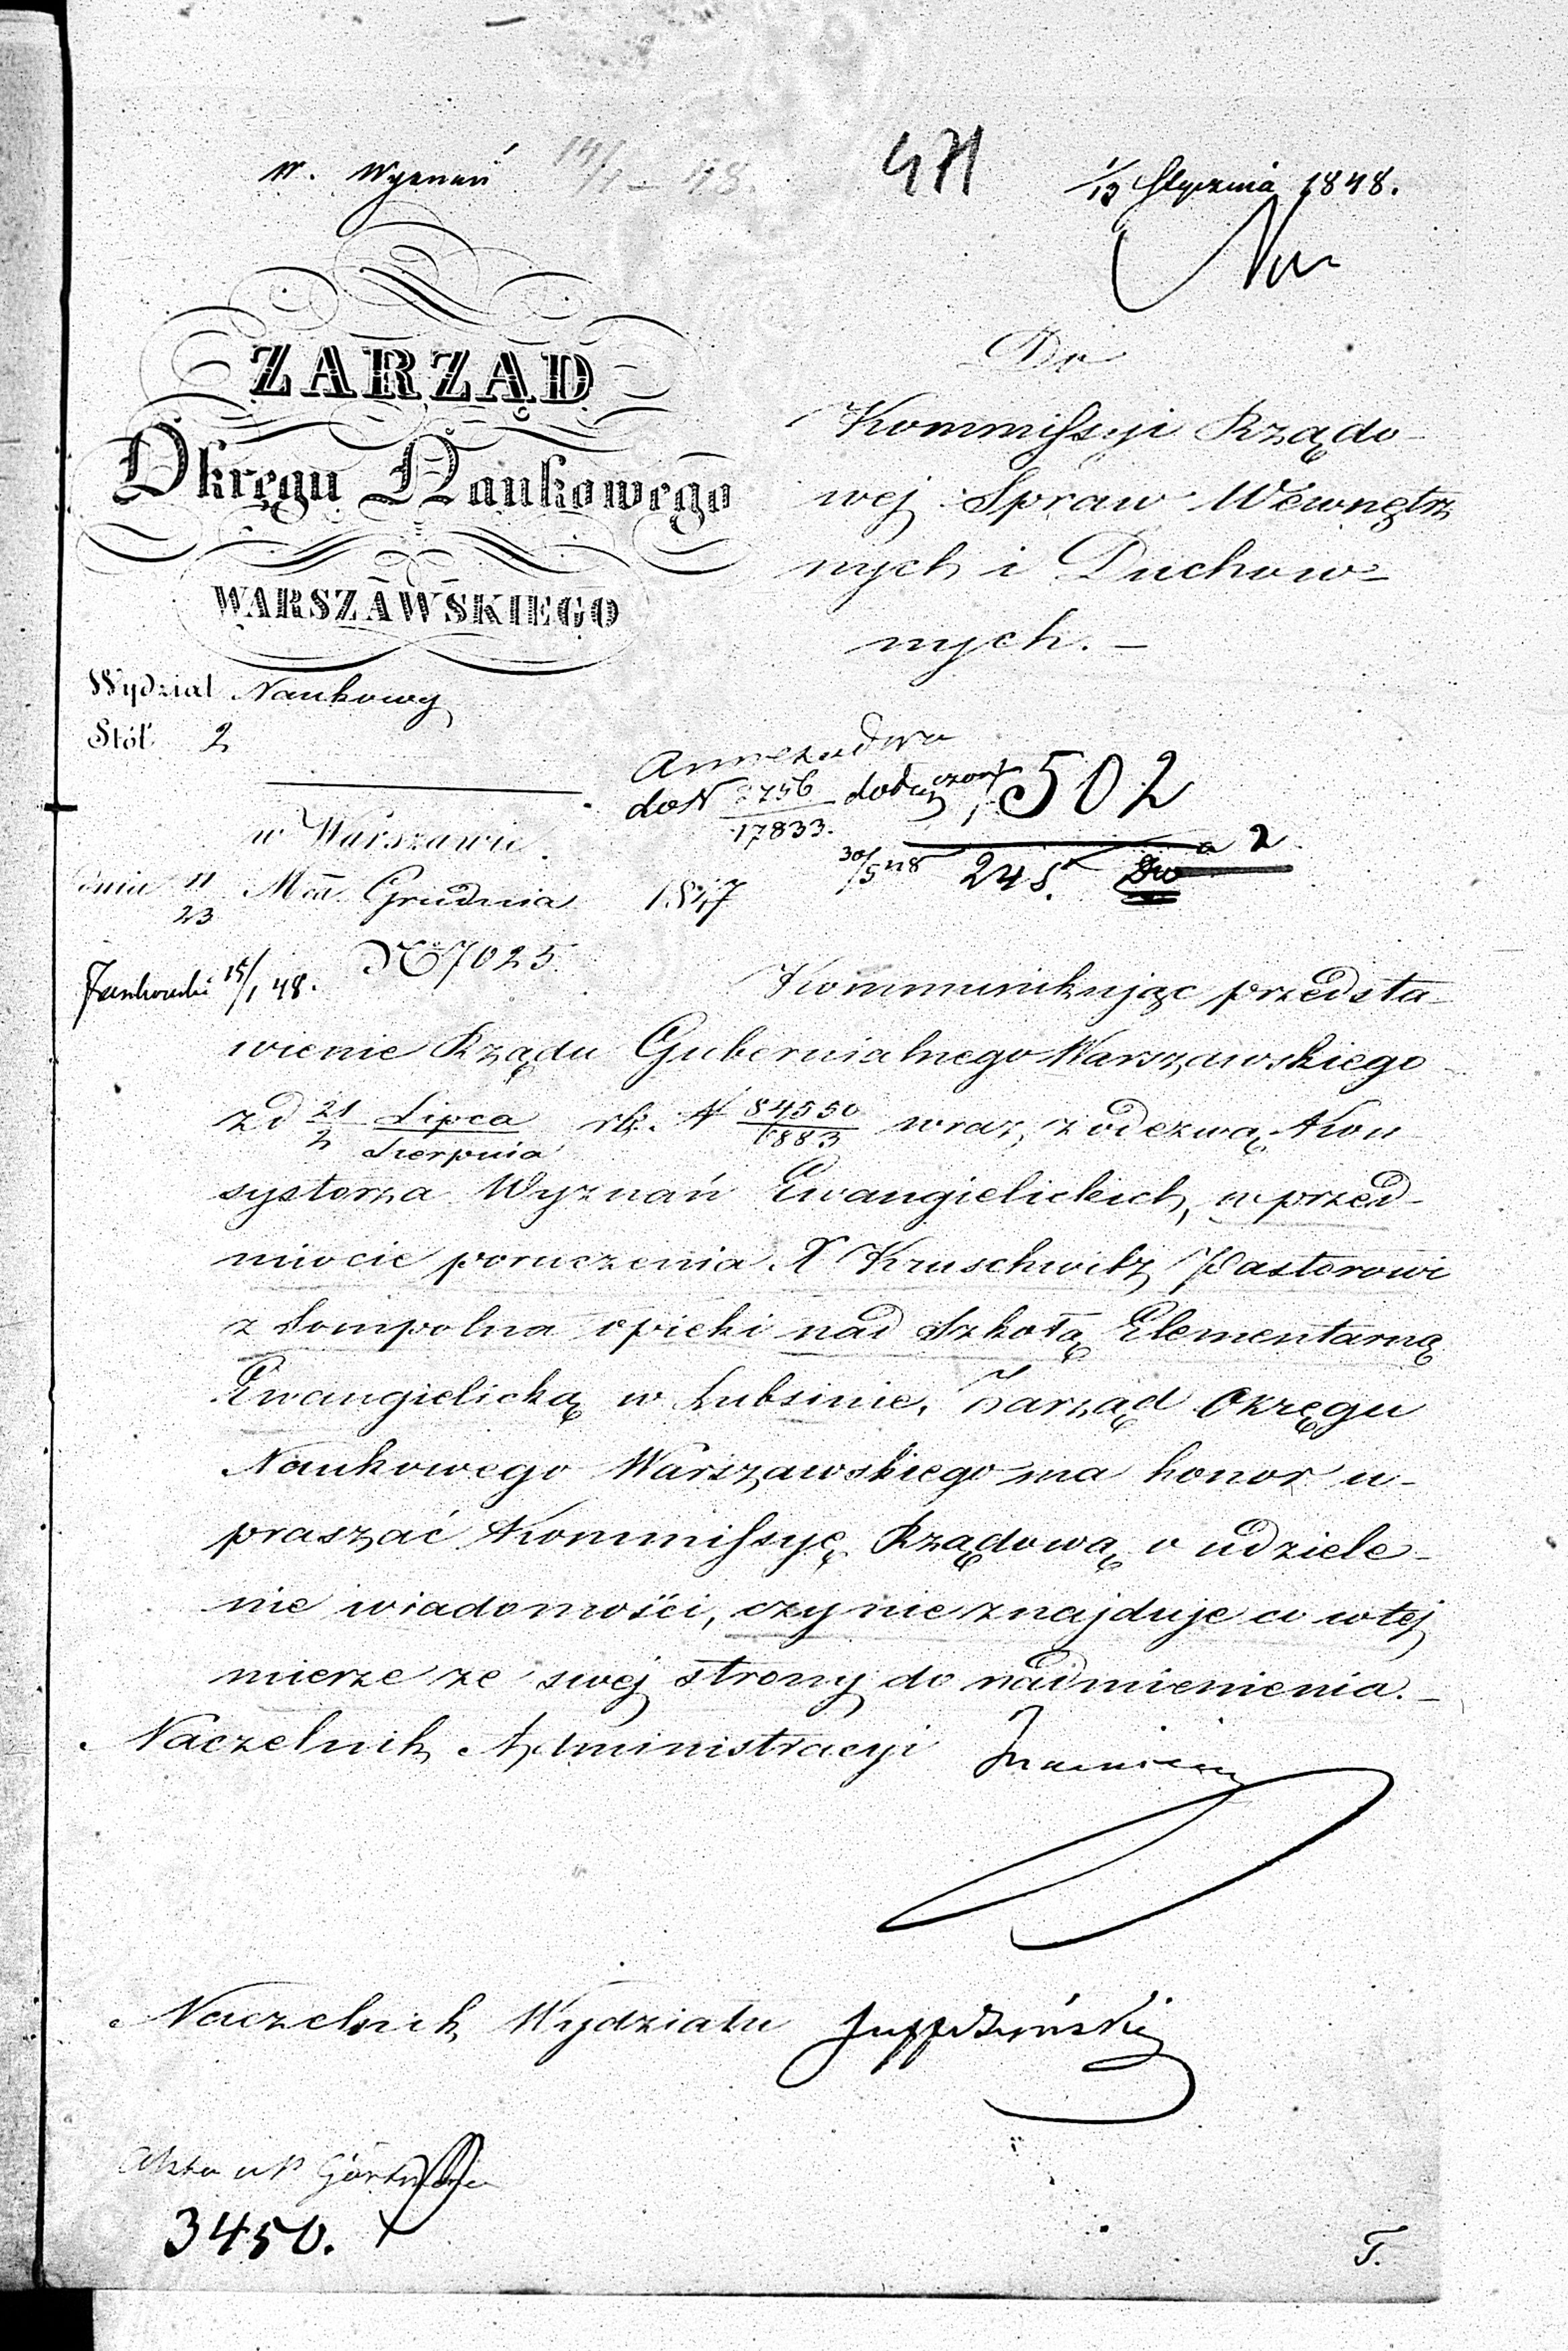 W. Wyznań 14/1 – 48. 471 1/13 Stycznia 1848.
ZARZĄD
Okręgu Naukowego
WARSZAWSKIEGO
Wydział Naukowy
Stół 2
Do
Kommissyi Rządo-
wej Spraw Wewnętrz
nych i Duchow-
nych. –
Annexa dwa
do N 2756/17833. dołączono
502
30/5 48 248. a 2
w Warszawie
dnia 11/23 Mca Grudnia 1847
No 7025.
15/1 48.
Kommunikując przedsta-
wienie Rządu Gubernialnego Warszawskiego
z d 21/2 Lipca/Sierpnia rb. N 84550/1883 wraz z odezwą Kon
systorza Wyznań Ewangielickich, w przed-
miocie poruczenia X Kruschwitz Pastorowi
z Sompolna opieki nad Szkołą Elementarną
Ewangielicką w Lubsinie, Zarząd Okręgu
Naukowego Warszawskiego ma honor u-
praszać Kommissyę Rządową o udziele-
nie wiadomości, czy nie znajduje co w tej
mierze ze swej strony do nadmienienia. –
Naczelnik Administracyi
Naczelnik Wydziału
Akta u P
3450.
T.